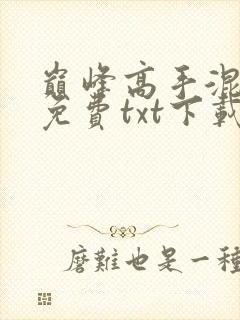 巅峰高手混
免费txt下载
磨难也是一种